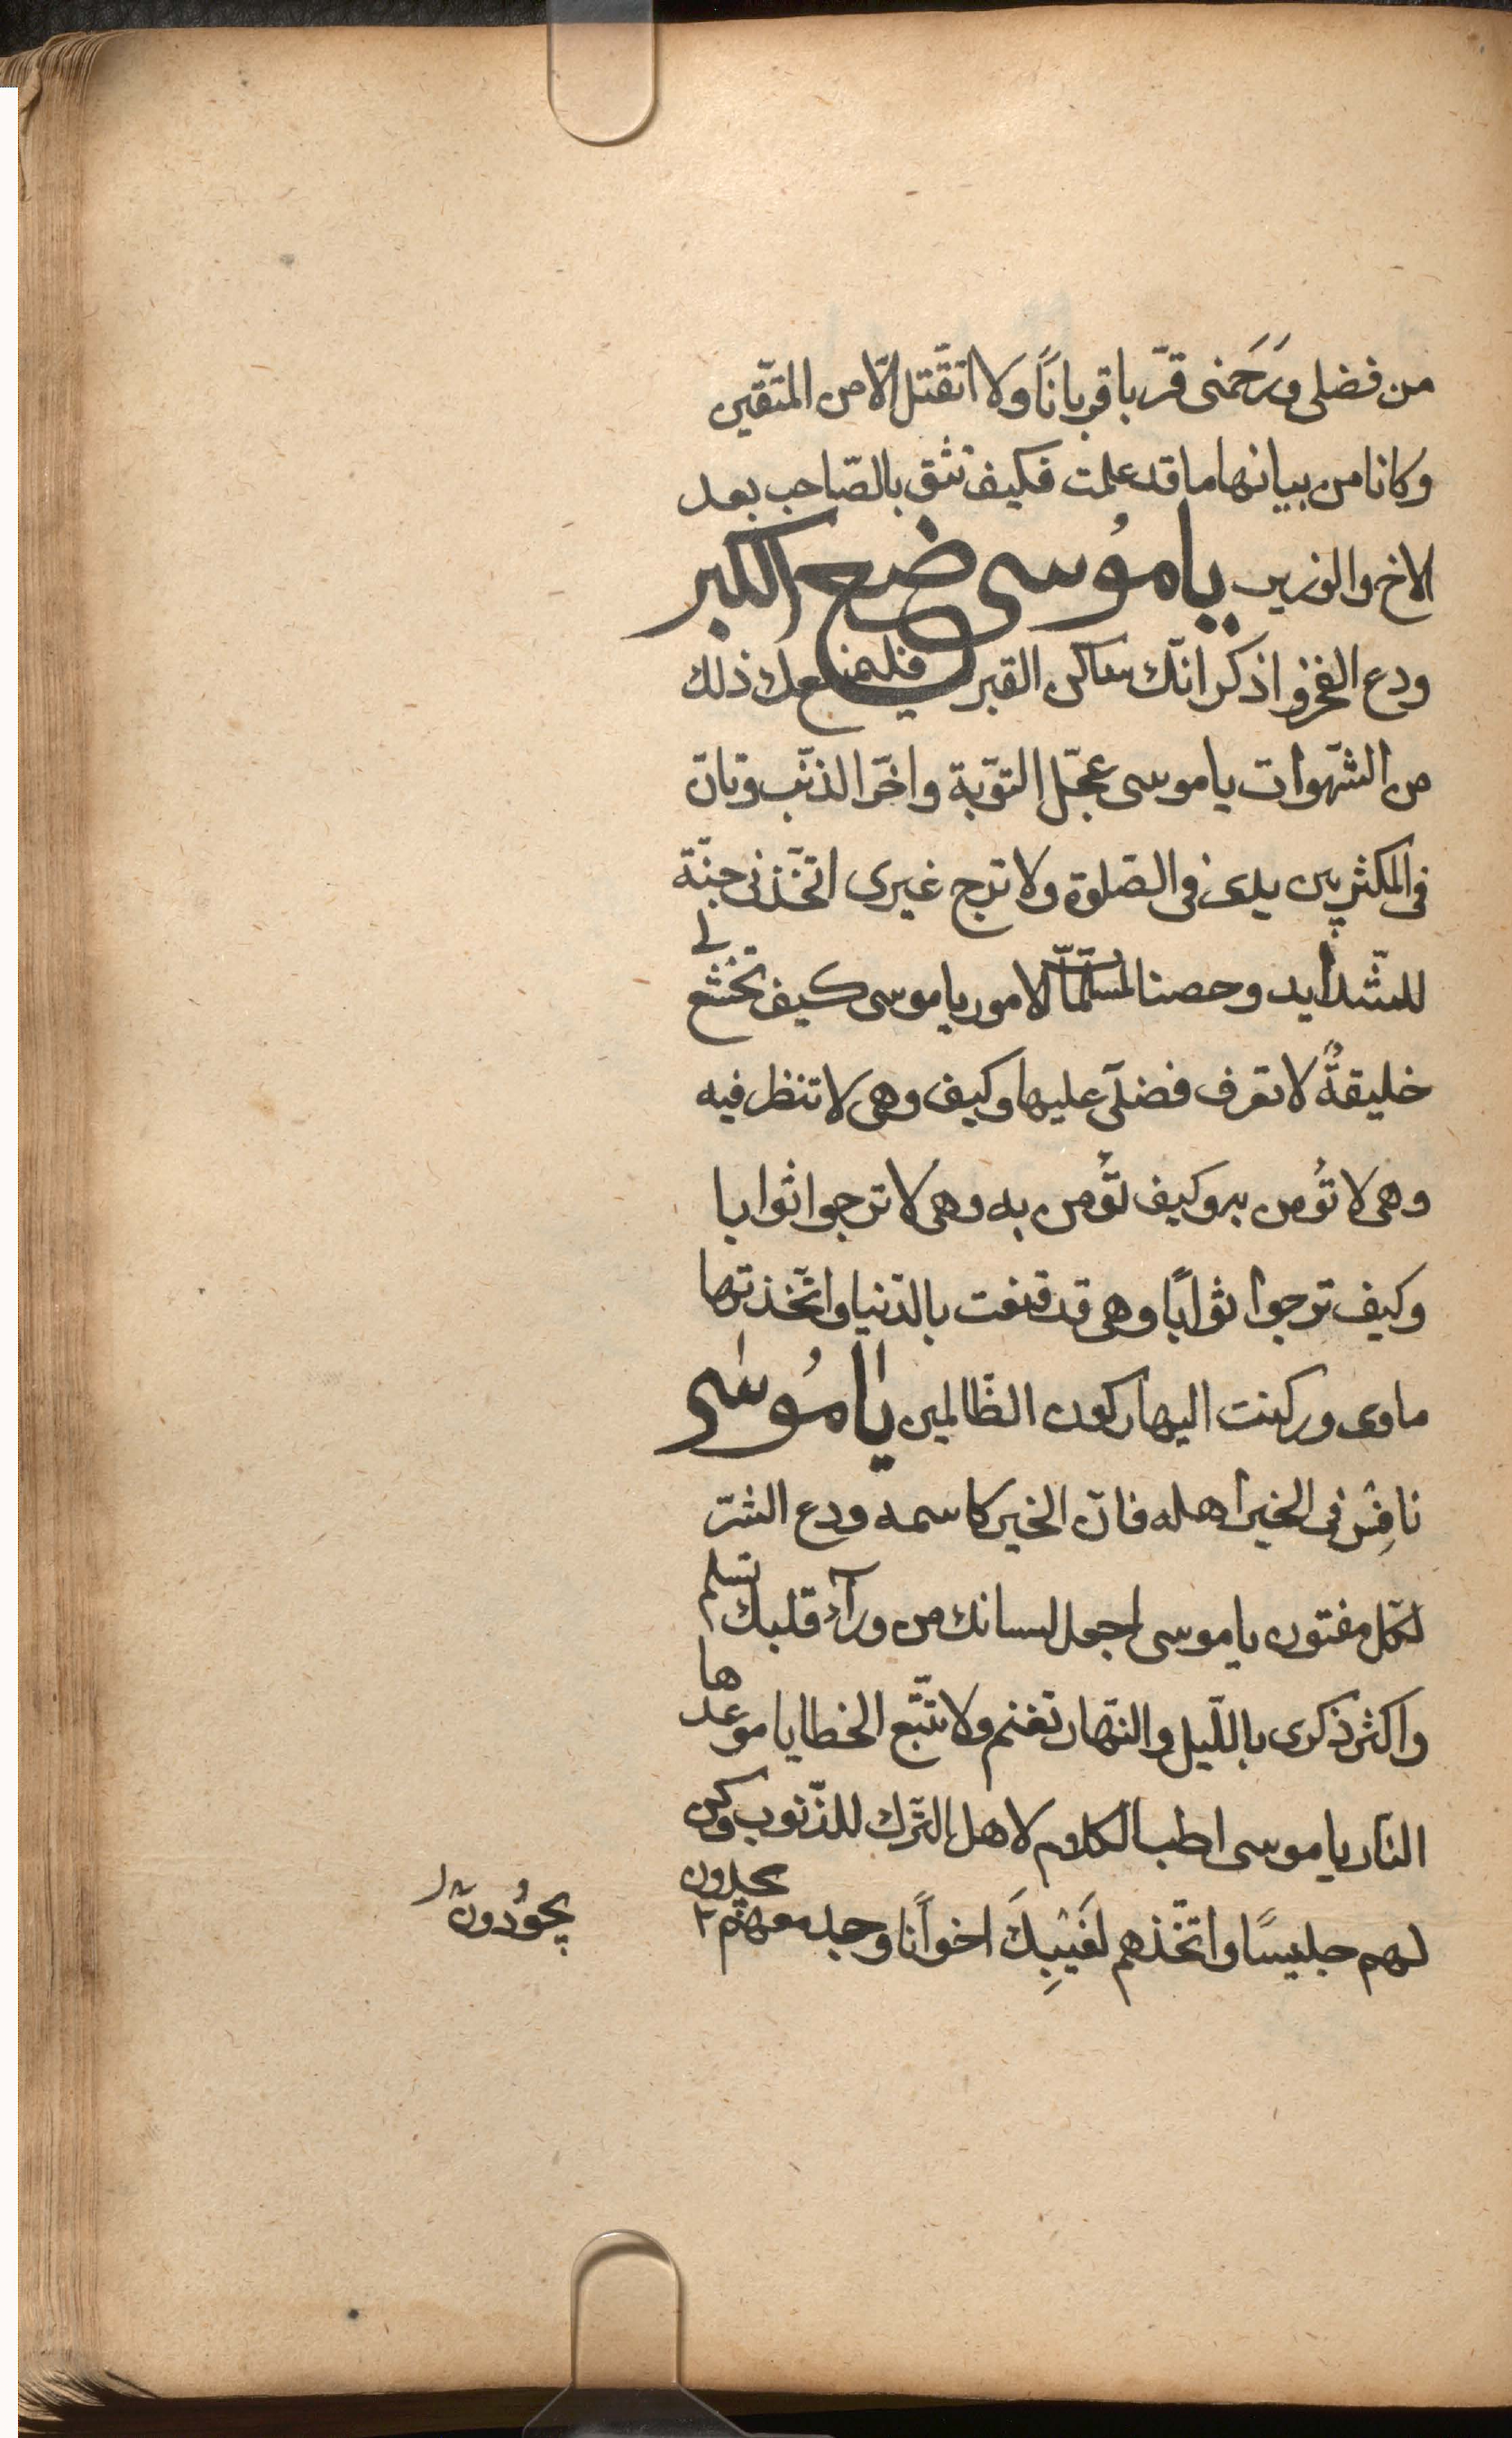 من فضلی وَرَحَمتی قرّبا قربانًا وَلا اتقّتل الّا من المتّقین
وکانا من بیانهما ما قد علمت فکیف تثق بالصّاحب بعد
الاخ والوزیر یا موُسی ضع الکبر
ودع الفخر واذکر انّک ساکن القبر فلیمنعک ذلک
من الشّهوات یا موسی عجّل التّوبة واخّر الذّنب وتانّ
فی المکث بین یدی فی الصّلوة ولا ترج غیری اتّخذنی جنّة
للشّدآید وحصنا لمسلمّات الامور یا موسی کیف تخشع لی
خلیقةٌ لا تعرف فضلی علیها وکیف وهی لا تنظر فیه
وهی لا تُؤمن به وکیف تؤُمن به وهی لا ترجوا ثوابا
وکیف ترجوا ثوابًا وهی قد قنعت بالدّنیا واتّخذتها
ماوی ورکنت الیها رکون الظّالمین یا موُسی
نافِسْ فی الخیر اهله فانّ الخیر کاسمه ودع الشّر
لکلّ مفتون یا موسی اجعل لسانک من ورآء قلبک تسلم
واکثر ذکری باللّیل والنّهار تغنم ولا تتّبع الخطایا موعدها
النّار یا موسی اطب الکلام لاهل التّرک للذّنوب وکن
لهم جلیسًا واتّخذهم لغَیبِکَ اخوانًا وجد معهم یجدون
یجوُدون